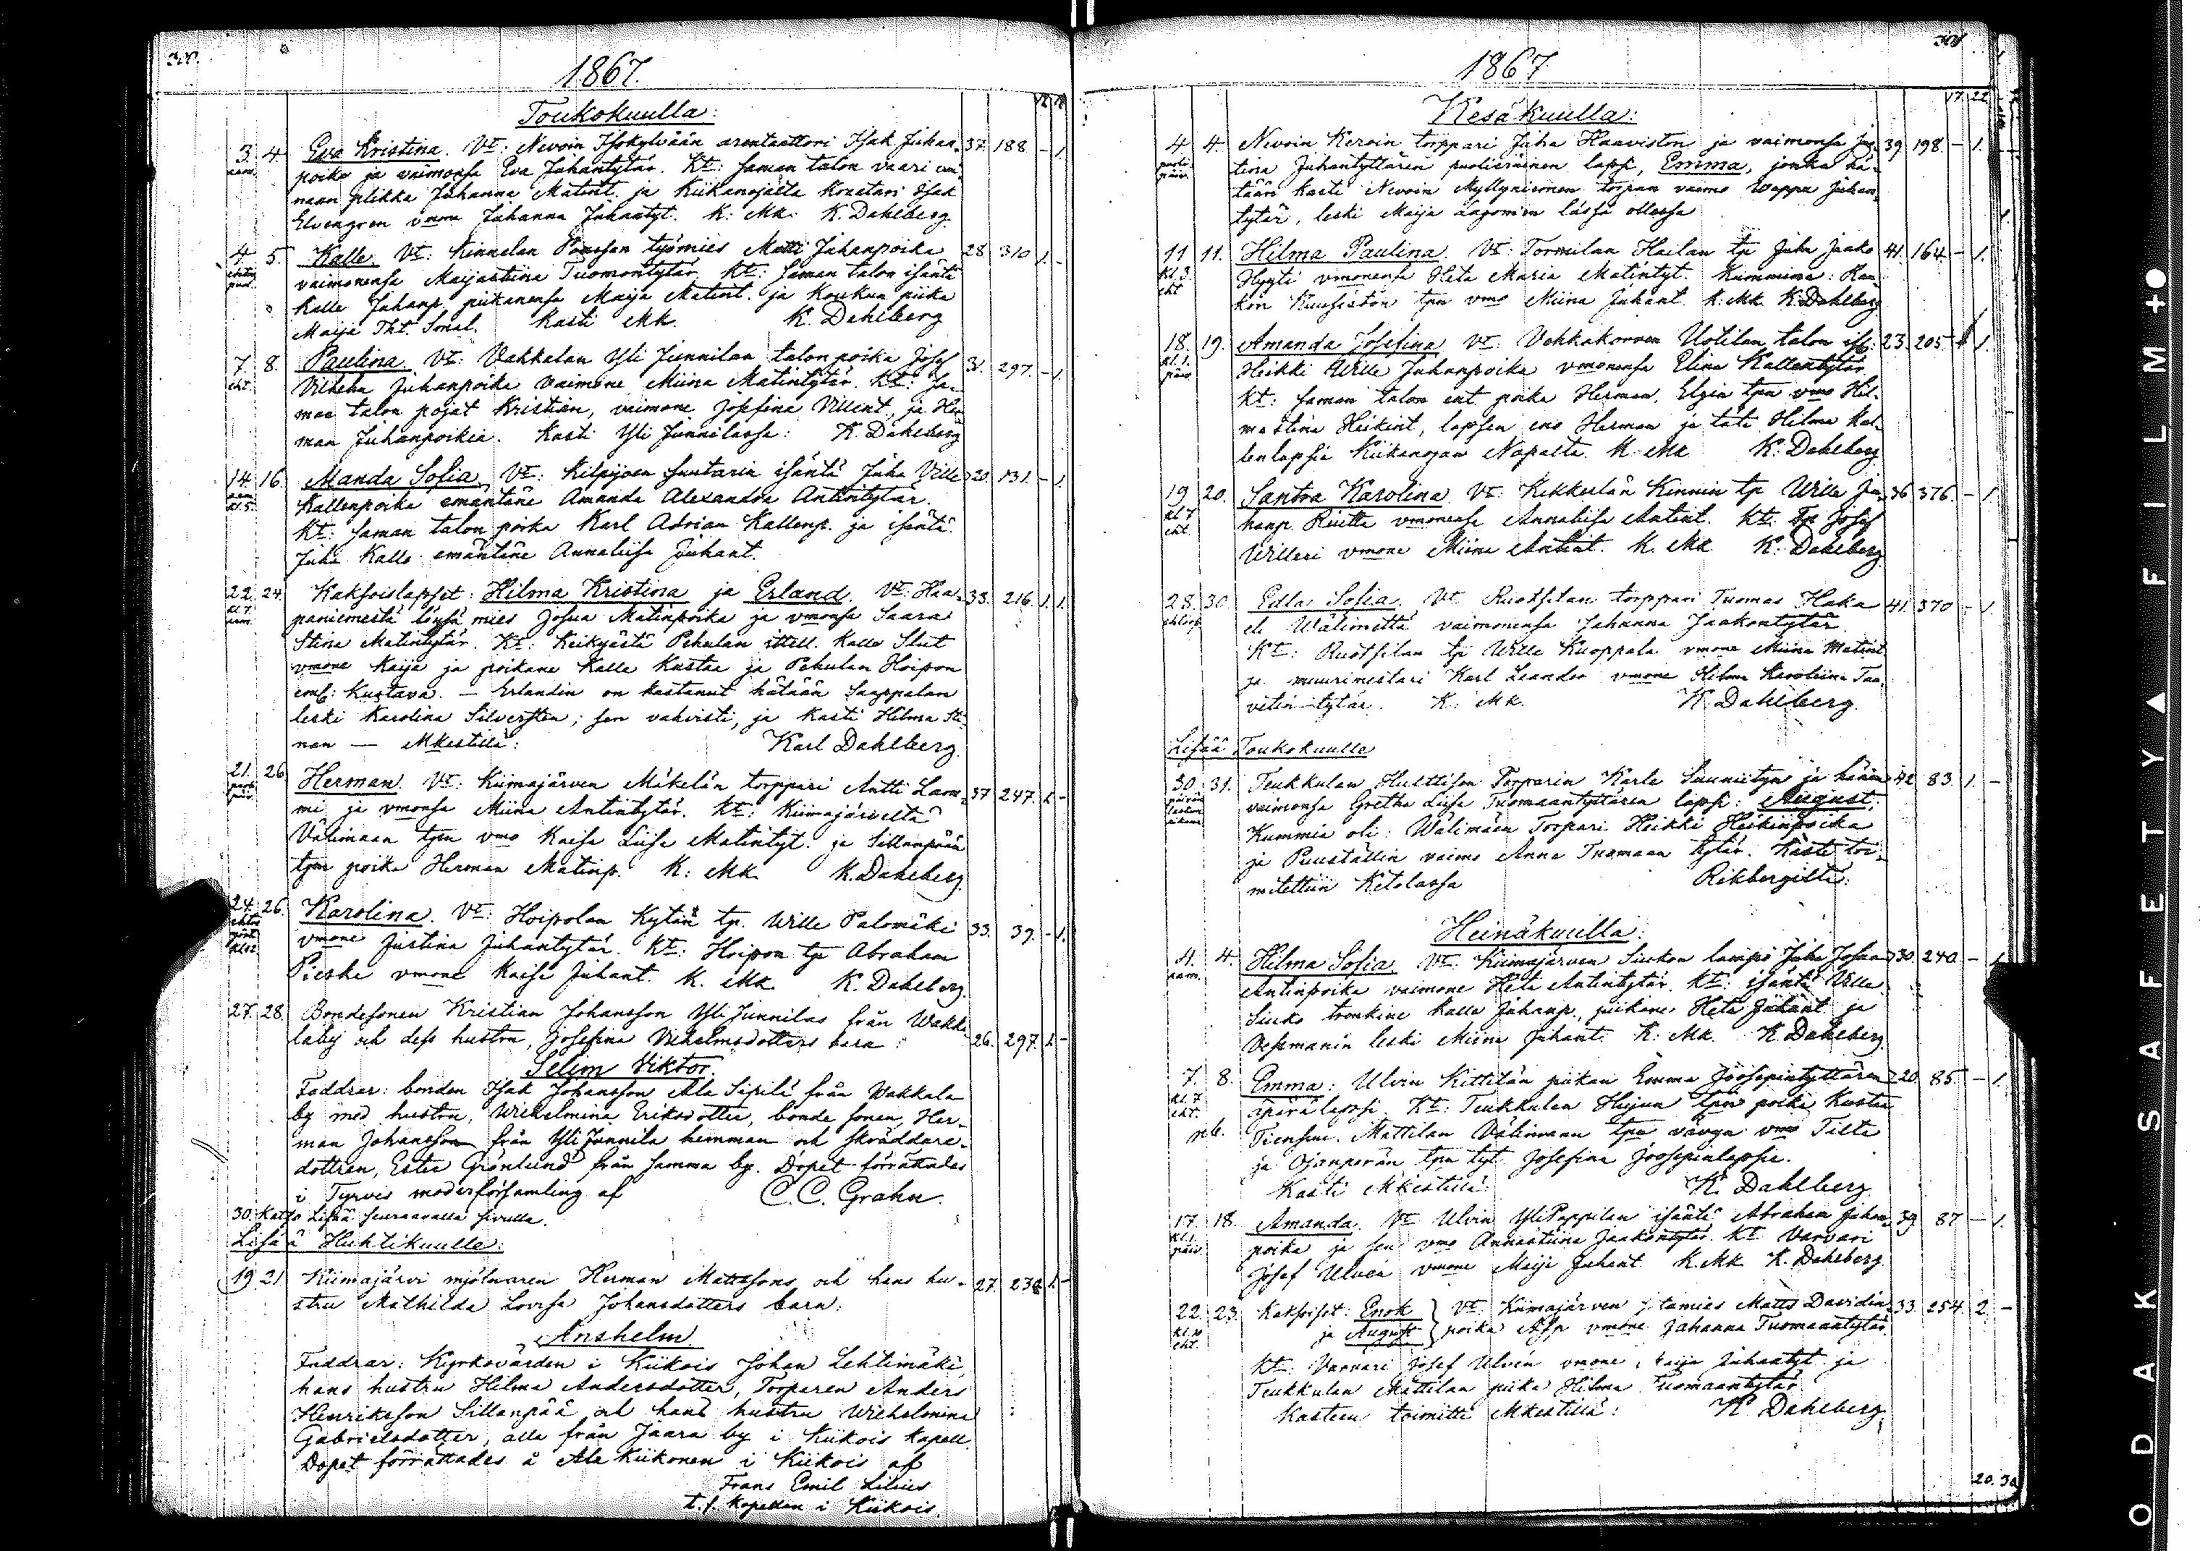 300.
1867.
Toukokuulla:
3. 4. Eva Kristina. Vt: Nevoin Isokylvään arentaattori Isak Juhan- 37. 188. - 1.
aam. poika ja vaimonsa Eva Juhantytär. Kt: saman talon vaari
naan plikka Johanna Matint. ja Kiikanojalta Konstari Isak
Elvengren vmone Johanna Juhantyt. K. Mk. K. Dahlberg.
4. 5. Kalle. Vt: Kinnalan Panssan työmies Matti Juhanpoika 28 310 1. -
vaimonensa Maijastiina Tuomontytär. Kt: saman talon isäntä
Kalle Juhanp. piikanensa Maija Matint. ja Koukun piika
Maija Tht. Sonal. Kasti Mk. K. Dahlberg
7. 8. Paulina. Vt: Vakkalan Yli Junnilan talon poika Josef 31. 297. - 1.
eht. Vilhelm Juhanpoika vaimone Miina Matintytär. Kt: Sa-
man talon pojat Kristian, vaimone Josefina Villent., ja Her-
man Juhanpoikia. Kasti Yli Junnilassa: K. Dahlberg
14. 16. Manda Sofia. Vt: Kilpijoen Suutarin isäntä Juha Ville 20. 131. - 1.
aam. kl. 5. Kallenpoika emäntäne Amanda Alexandra Antintytär.
Kt: saman talon poika Karl Adrian Kallenp. ja isäntä
Juha Kalle emäntäne Annaliisa Juhant.
22. 24. Kaksoislapset: Hilma Kristina ja Erland. Vt: Haa- 33. 216. 1. 1.
kl. 7. aam. paniemestä löysä mies Josua Matinpoika ja vmonsa Saara
Stina Matintytär. Kt: Keikyästä Pehulan ittell. Kalle Slut
vmone Kaija ja poikane Kalle Kustaa ja Pehulan Hoipon
ems: Kustava. — Erlandin on kastanut hätään Saappalan
leski Karolina Silversten; sen vahvisti, ja kasti Hilma Sti-
nan — Mkestillä: Karl Dahlberg.
21. 26. Herman. Vt: Kiimajärven Mäkelän torppari Antti Lam- 37 247. 1. -
mi ja vmonsa Miina Antintytär. Kt: Kiimajärveltä
Välimaan tpn vmo Kaisa Liisa Matintyt. ja Sillanpään
tpn poika Herman Matinp. K. Mk. K. Dahlberg.
24. 26. Karolina. Vt: Hoipolan Kytän tp. Wille Palomäki 33. 39. - 1.
vmone Justina Juhantytär. Kt: Hoipon tp Abraham
Pieska vmone Kaisa Juhant. K. Mk. K. Dahlberg.
27. 28. Bondesonen Kristian Johansson Yli Junnilas från Wakka-
laby och dess hustru, Josefina Vilhelmsdotters barn: 26. 297. 1. -
Selim Viktor.
Faddrar: bonden Isak Johansson Ala Sipilä från Wakkala
by med hustru, Wilhelmina Eriksdotter, bonde sonen, Her-
man Johansson från Yli Junnila hemman och skräddare-
dottren, Ester Grönlund från samma by. Dopet förrättades
i Tyrvis moderförsamling af C. C. Grahn.
30. Katso Lisää seuraavalla sivulla.
Lisää Huhtikuulle:
19. 21. Kiimajärvi mjölnaren Herman Mattssons och hans hu- 27. 238. 1. -
stru Mathilda Lovisa Johansdotters barn:
Anshelm.
Faddrar: Kyrkovärden i Kiikois Johan Lehtimäki,
hans hustru Hilma Andersdotter, Torparen Anders
Henriksson Sillanpää och hans hustru Wilhelmina
Gabrielsdotter, alla från Jaara by i Kiikois kapell.
Dopet förrättades å Ala Kiikonen i Kiikois af
Frans Emil Lilius
t. f. kapellan i Kiikois.
301
1867
Kesäkuulla:
4. 4. Nevoin Keroin torppari Juha Haaviston ja vaimonsa Jus- 39 198. - 1.
puoli päiv. tina Juhantyttären puolieräinen lapsi, Emma, jonka hä-
tään kasti Nevoin Myllyniemen torpan vaimo Wappu Juhan-
tytär, leski Maija Lagomin läsnä ollessa
11 11. Hilma Paulina. Vt: Tormilan Hailan tp Juha Jaako 41. 164 - 1.
kl. 3. eht. Hyyti vmonensa Heta Maria Matintyt. Kummina: Kau-
kon Kuusiston tpn vmo Miina Juhant. K. Mk. K. Dahlberg
18. 19. Amanda Josefina. Vt: Vehkakorven Uotilan talon is: 23. 205 1.
kl. 1. päiv. Heikki Wille Juhanpoika vmonensa Elina Kallentytär
Kt: saman talon ent poika Herman, Elgin tpn vmo Hil-
mastina Heikint, lapsen eno Herman ja täti Hilma Kal-
lenlapsia Kiikanojan Napalta. K. Mk K. Dahlberg
19. 20. Santra Karolina. Vt: Kekkerlän Kinnin tp Wille Ju- 36 376. - 1.
kl. 7 eht. hanp. Riutta vmonensa Annaliisa Antint. Kt: tp Josef
Willari vmone Miina Antint. K. Mk K. Dahlberg
28. 30. Edla Sofia. Vt Ruotsilan torppari Tuomas Haka 41. 370 - 1.
el. Wälimettä vaimonensa Johanna Jaakontytär.
Kt: Ruotsilan tp Wille Kuoppala vmone Miina Matint
ja muurimestari Karl Leander vmone Hilma Karoliina Taa-
vetin-tytär. K. Mk. K. Dahlberg.
Lisää Toukokuulle
30. 31. Teukkulan Hulttisen Torparin Karle Suuniityn ja hänen 42 83. 1. -
vaimonsa Gretha Liisa Tuomaantyttären lapsi: August;
Kummia oli: Wälimäen Torpari Heikki Heikinpoika
ja Puuställin vaimo Anna Tuomaan tytär. Kaste toi-
mitettiin Ketolassa Rikbergiltä:
Heinäkuulla:
4. 4. Hilma Sofia. Vt: Kiimajärven Sinkon lampo Juha Josua 30. 240. - 1.
aam. Antinpoika vaimone Heta Antintytär. Kt: isäntä Wille
Sinko trenkine Kalle Juhanp., piikane Heta Juhant ja
Vessmanin leski Miina Juhant. K. Mk. K. Dahlberg.
7. 8. Emma: Ulvin Kittilän piikan Emma Joosepintyttären 20. 85. - 1.
kl. 7 eht. äpärälapsi. Kt: Teukkulan Hujun tpn poika Kustaa
Tiensuu, Mattilan Välimaan tpn vävyn vmo Tilta
ja Ojanperän tpn tyt Josefina Joosepinlapsia.
Kasti Mkestillä: K. Dahlberg
17. 18. Amanda. Vt Ulvin Yli Pappilan isäntä Abraham Juhan- 39 87 - 1.
kl. 1. päiv. poika ja sen vmo Annastiina Jaakontytär. Kt Varvari
Josef Ulvin vmone Maija Juhant K. Mk K. Dahlberg
22. 23. Kaksoiset: Enok Vt: Kiimajärven itamies Matts Davidin 33. 254 2. -
kl. 10 eht. ja August poika vmone Johanna Tuomaantytär.
Kt. Varvari Josef Ulvin vmone Maija Juhantyt ja
Teukkulan Mattilan piika Hilma Tuomaantytär.
Kasteen toimitti Mkestillä: K Dahlberg.
20. 30
ODAK SAFETY ▲ FILM +●